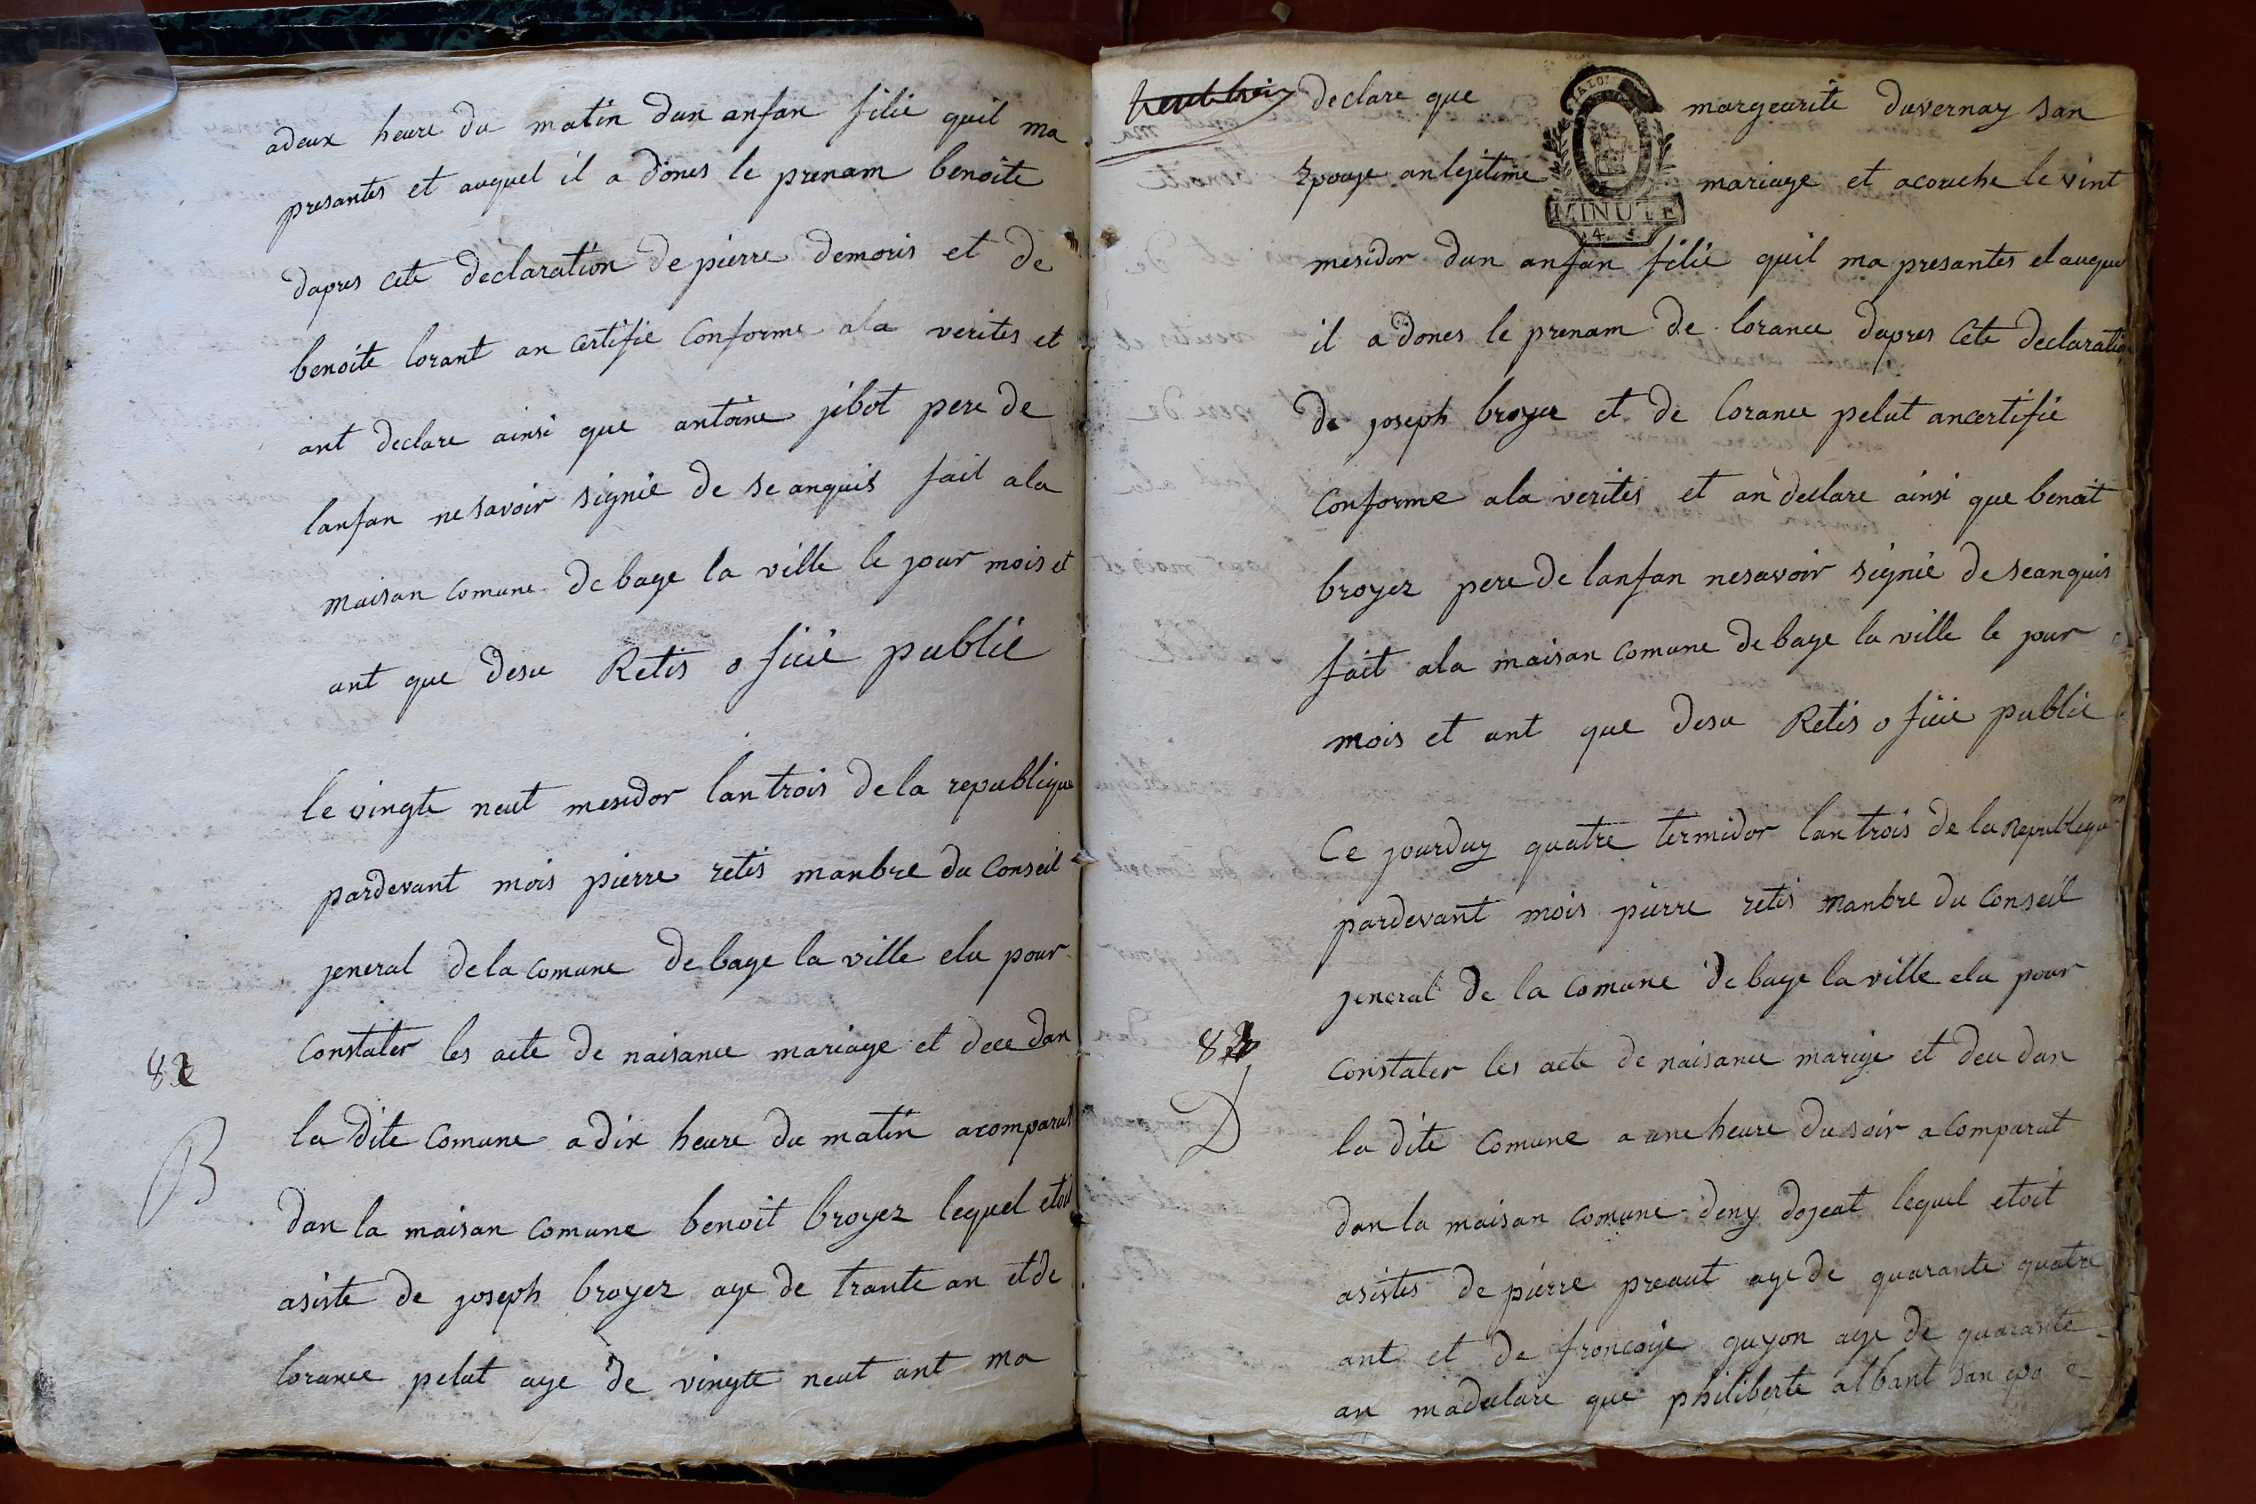 adeux heure du matin dun anfan filie quil ma
presantes et auquel il a dones le prenam benoite
dapres cete declaration de pierre demoris et de
benoite lorant an certifie conforme ala verites et
ant declare ainsi que antoine jibot pere de
lanfan nesavoir signie de se anquis fait ala
maison comune de bage la ville le jour mois et
ant que desu Retis oficie publie
le vingte neut mesidor lan trois de la republique
pardevant mois pierre retis manbre du Conseil
jeneral de la comune de bage la ville elu pour
constater les acte de naisance mariage et dece dan
82
la dite comune a dix heure du matin acomparut
B
dan la maison comune benoit broyez lequel etoit
asiste de joseph broyez age de trante an et de
lorance pelut age de vingte neut ant ma
declare que margeurite duvernay san
Epouse an lejitime mariage et acouche le vint
MINUTE
mesidor dun anfan filie quil ma presantes et auquel
il a dones le prenam de lorance dapres cete declaration
de joseph broyer et de lorance pelut ancertifie
conforme ala verites et an declare ainsi que benoit
broyez pere de lanfan nesavoir signie de seanquis
fait ala maison comune de bage la ville le jour
mois et ant que desu Retis oficie publie
Ce jourduy quatre termidor lan trois de la Republique
pardevant mois pierre retis manbre du conseil
jeneral de la comune de bage la ville elu pour
constater les acte de naisance marige et dece dan
D
la dite comune a une heure du soir acomparut
dan la maison comune deny dojeat lequel etoit
asistes de pierre preaut age de quarante quatre
ant et de francoise guyon age de quarante
an madeclare que philiberte albant san